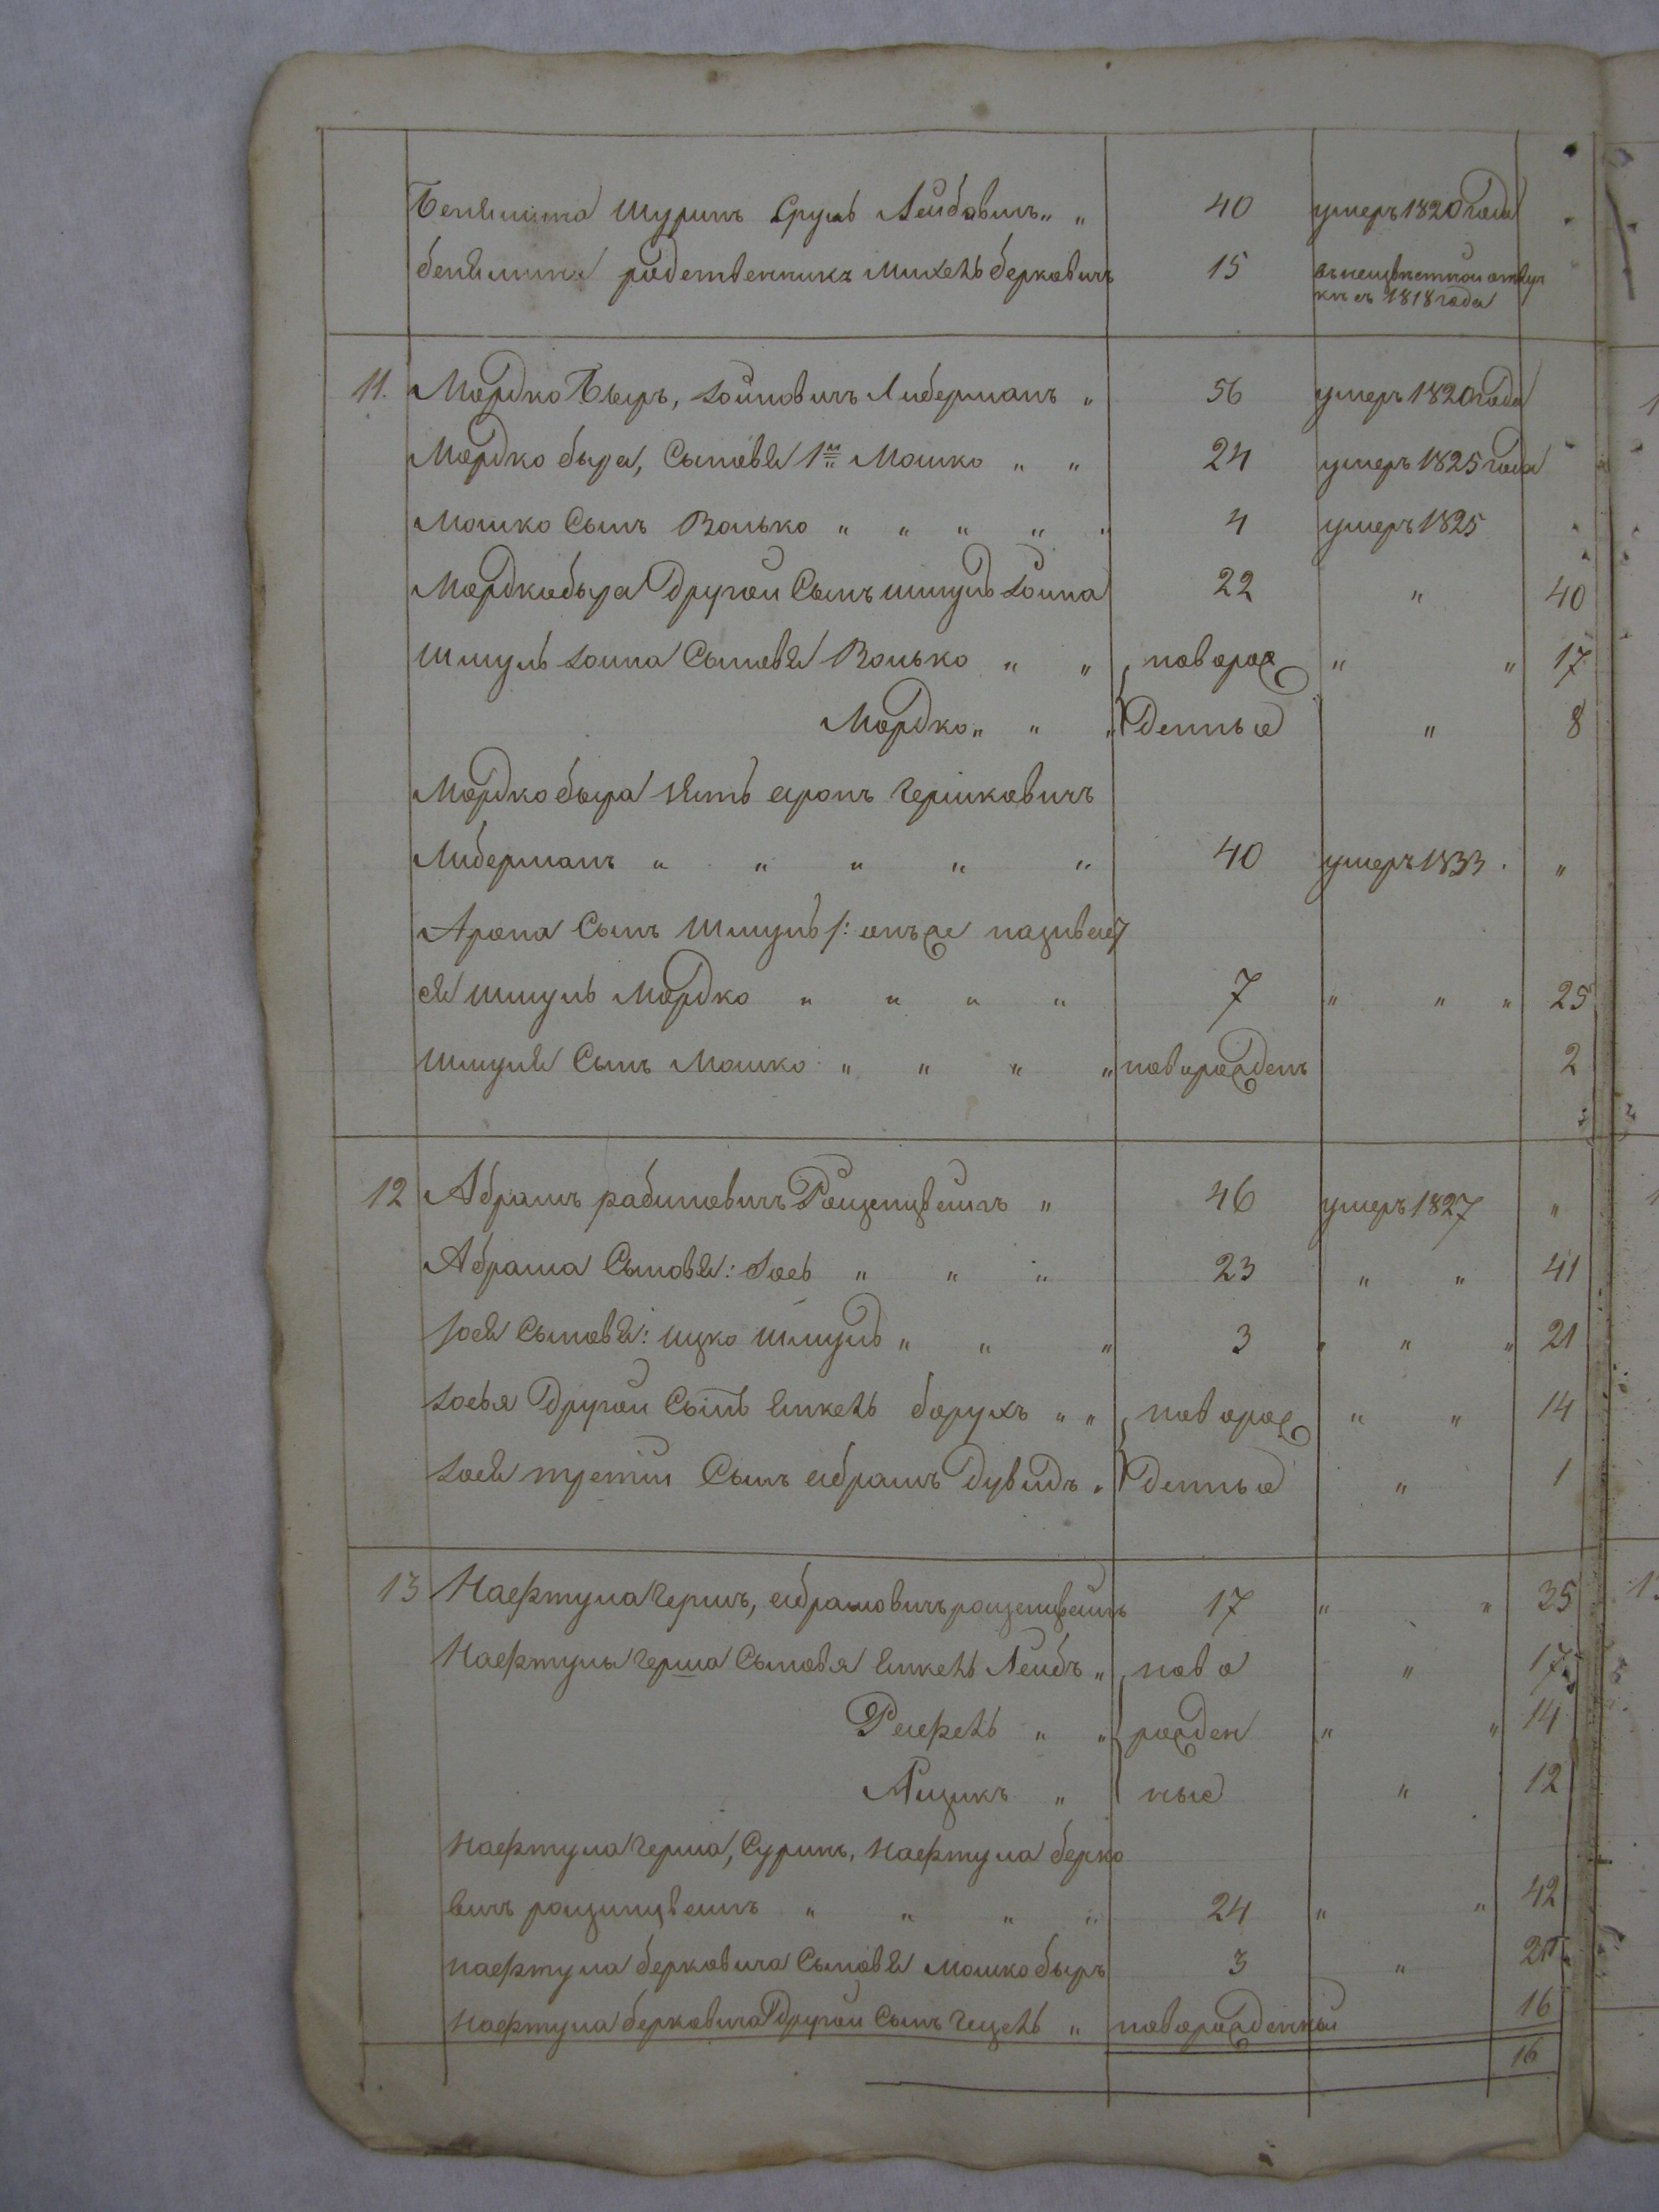 Бенямина Шуринъ Сруль Лейбовичъ „ „ 40 умеръ 1820 года
бенямина родственникъ Михель берковичъ 15 въ неизвѣстной отлуч
кѣ съ 1818 года
11. Мордко Быръ, Іойновичъ Либерманъ „ 56 умеръ 1820 года
Мордко быра, Сыновья 1й Мошко „ „ 24 умеръ 1825 года
Мошко Сынъ Волько „ „ „ „ „ 4 умеръ 1825
Мордко быра Другой Сынъ шмуль Іойна 22 „ 40
Шмуль Іойна Сыновья Волько „ „ новорож „ „ 17
Мордко „ „ „ денные „ 8
Мордко быра зять аронъ гершковичъ
Либерманъ „ „ „ „ „ 40 умеръ 1833. „
Арона Сынъ Шмуль /: онъ же називает
ся Шмуль Мордко „ „ „ „ 7 „ „ „ 25
Шмуля Сынъ Мошко „ „ „ „ новорожденъ 2
12 Абрамъ рабиновичъ Розенцвейгъ „ 46 умеръ 1827 „
Абрама Сыновья: Іось „ „ „ 23 „ „ 41
Іося Сыновья: ицко Шмуль „ „ „ 3 „ „ „ 21
Іосья Другой Сынъ Янкель борухъ „ „ новорож „ „ 14
Іося третій Сынъ абрамъ Дувидъ „ денные „ 1
13 Нафтула Гершъ, абрамовичъ розенцвейгъ 17 „ „ 35
Нафтулы герша Сыновя Янкель Лейбъ „ ново „ 17
Рафель „ „ рожден „ „ 14
Айзикъ „ ные „ 12
Нафтула герша, Суринъ, Нафтула берко
вичъ розинцвейгъ „ „ „ „ 24 „ „ 42
нафтула берковича Сыновья мошко быръ 3 „ 21
Нафтула берковича Другой Сынъ Гецель „ новорожденной 16
16